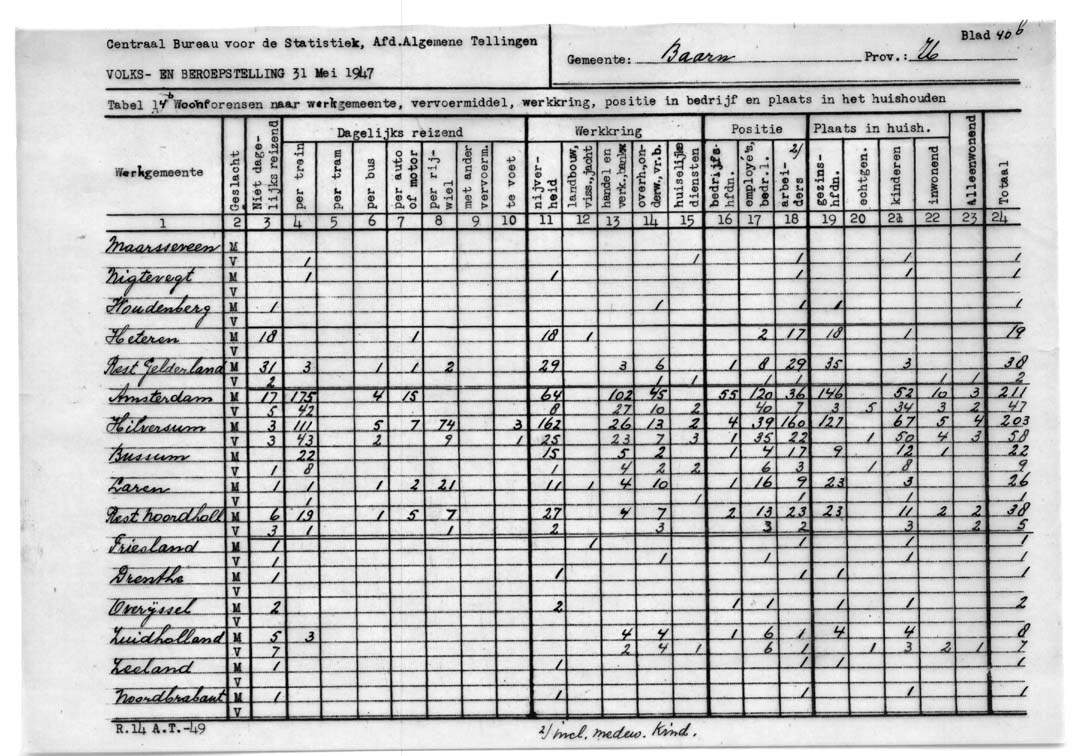 Blad 40b
Centraal Bureau voor de Statistiek, Afd.Algemene Tellingen
Gemeente: Baarn Prov.: U
VOLKS- EN BEROEPSTELLING 31 Mei 1947
Tabel 14b Woonforensen naar werkgemeente, vervoermiddel, werkkring, positie in bedrijf en plaats in het huishouden
Werkgemeente | Geslacht | Niet dagelijks reizend | Dagelijks reizend | Werkkring | Positie | Plaats in huish. | Alleenwonend | Totaal
per trein | per tram | per bus | per auto of motor | per rijwiel | met ander vervoerm. | te voet | nijverheid | landbouw, viss.,jacht | handel en verk., bankw | overh., onderw., vr.b. | huiselijke diensten | bedrijfshfdn. | employé's, bedr.l. | 2/ arbeiders | gezinshfdn. | echtgen. | kinderen | inwonend
1 2 3 4 5 6 7 8 9 10 11 12 13 14 15 16 17 18 19 20 21 22 23 24
Maarsseveen M
V 1 1 1 1 1
Nigtevegt M 1 1 1 1 1
V
Woudenberg M 1 1 1 1 1
V
Heteren M 18 1 18 1 2 17 18 1 19
V
Rest Gelderland M 31 3 1 1 2 29 3 6 1 8 29 35 3 38
V 2 1 1 1 1 1 1 2
Amsterdam M 17 175 4 15 64 102 45 55 120 36 146 52 10 3 211
V 5 42 8 27 10 2 40 7 3 5 34 3 2 47
Hilversum M 3 111 5 7 74 3 162 26 13 2 4 39 160 127 67 5 4 203
V 3 43 2 9 1 25 23 7 3 1 35 22 1 50 4 3 58
Bussum M 22 15 5 2 1 4 17 9 12 1 22
V 1 8 1 4 2 2 6 3 1 8 9
Laren M 1 1 1 2 21 11 1 4 10 1 16 9 23 3 26
V 1 1 1 1 1
Rest Noordholl M 6 19 1 5 7 27 4 7 2 13 23 23 11 2 2 38
V 3 1 1 2 3 3 2 3 2 5
Friesland M 1 1 1 1 1
V 1 1 1 1 1
Drenthe M 1 1 1 1 1
V
Overijssel M 2 2 1 1 1 1 2
V
Zuidholland M 5 3 4 4 1 6 1 4 4 8
V 7 2 4 1 6 1 1 3 2 1 7
Zeeland M 1 1 1 1 1
V
Noordbrabant M 1 1 1 1 1
V
R.14 A.T.-49
2/ incl. medew. Kind.